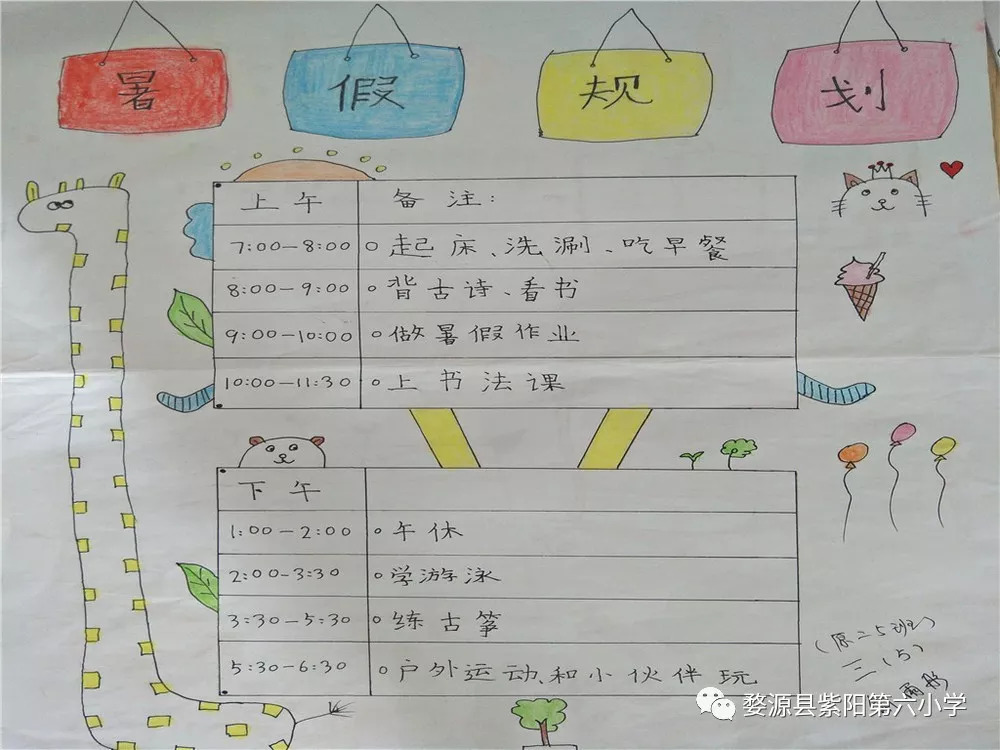 暑 假 规 划
上午 备注:
7:00—8:00 起床、洗涮、吃早餐
8:00—9:00 背古诗、看书
9:00—10:00 做暑假作业
10:00—11:30 上书法课
下午
1:00—2:00 午休
2:00-3:30 学游泳
3:30—5:30 练古筝
5:30—6:30 户外运动、和小伙伴玩
(原二5班)
三(5)
婺源县紫阳第六小学